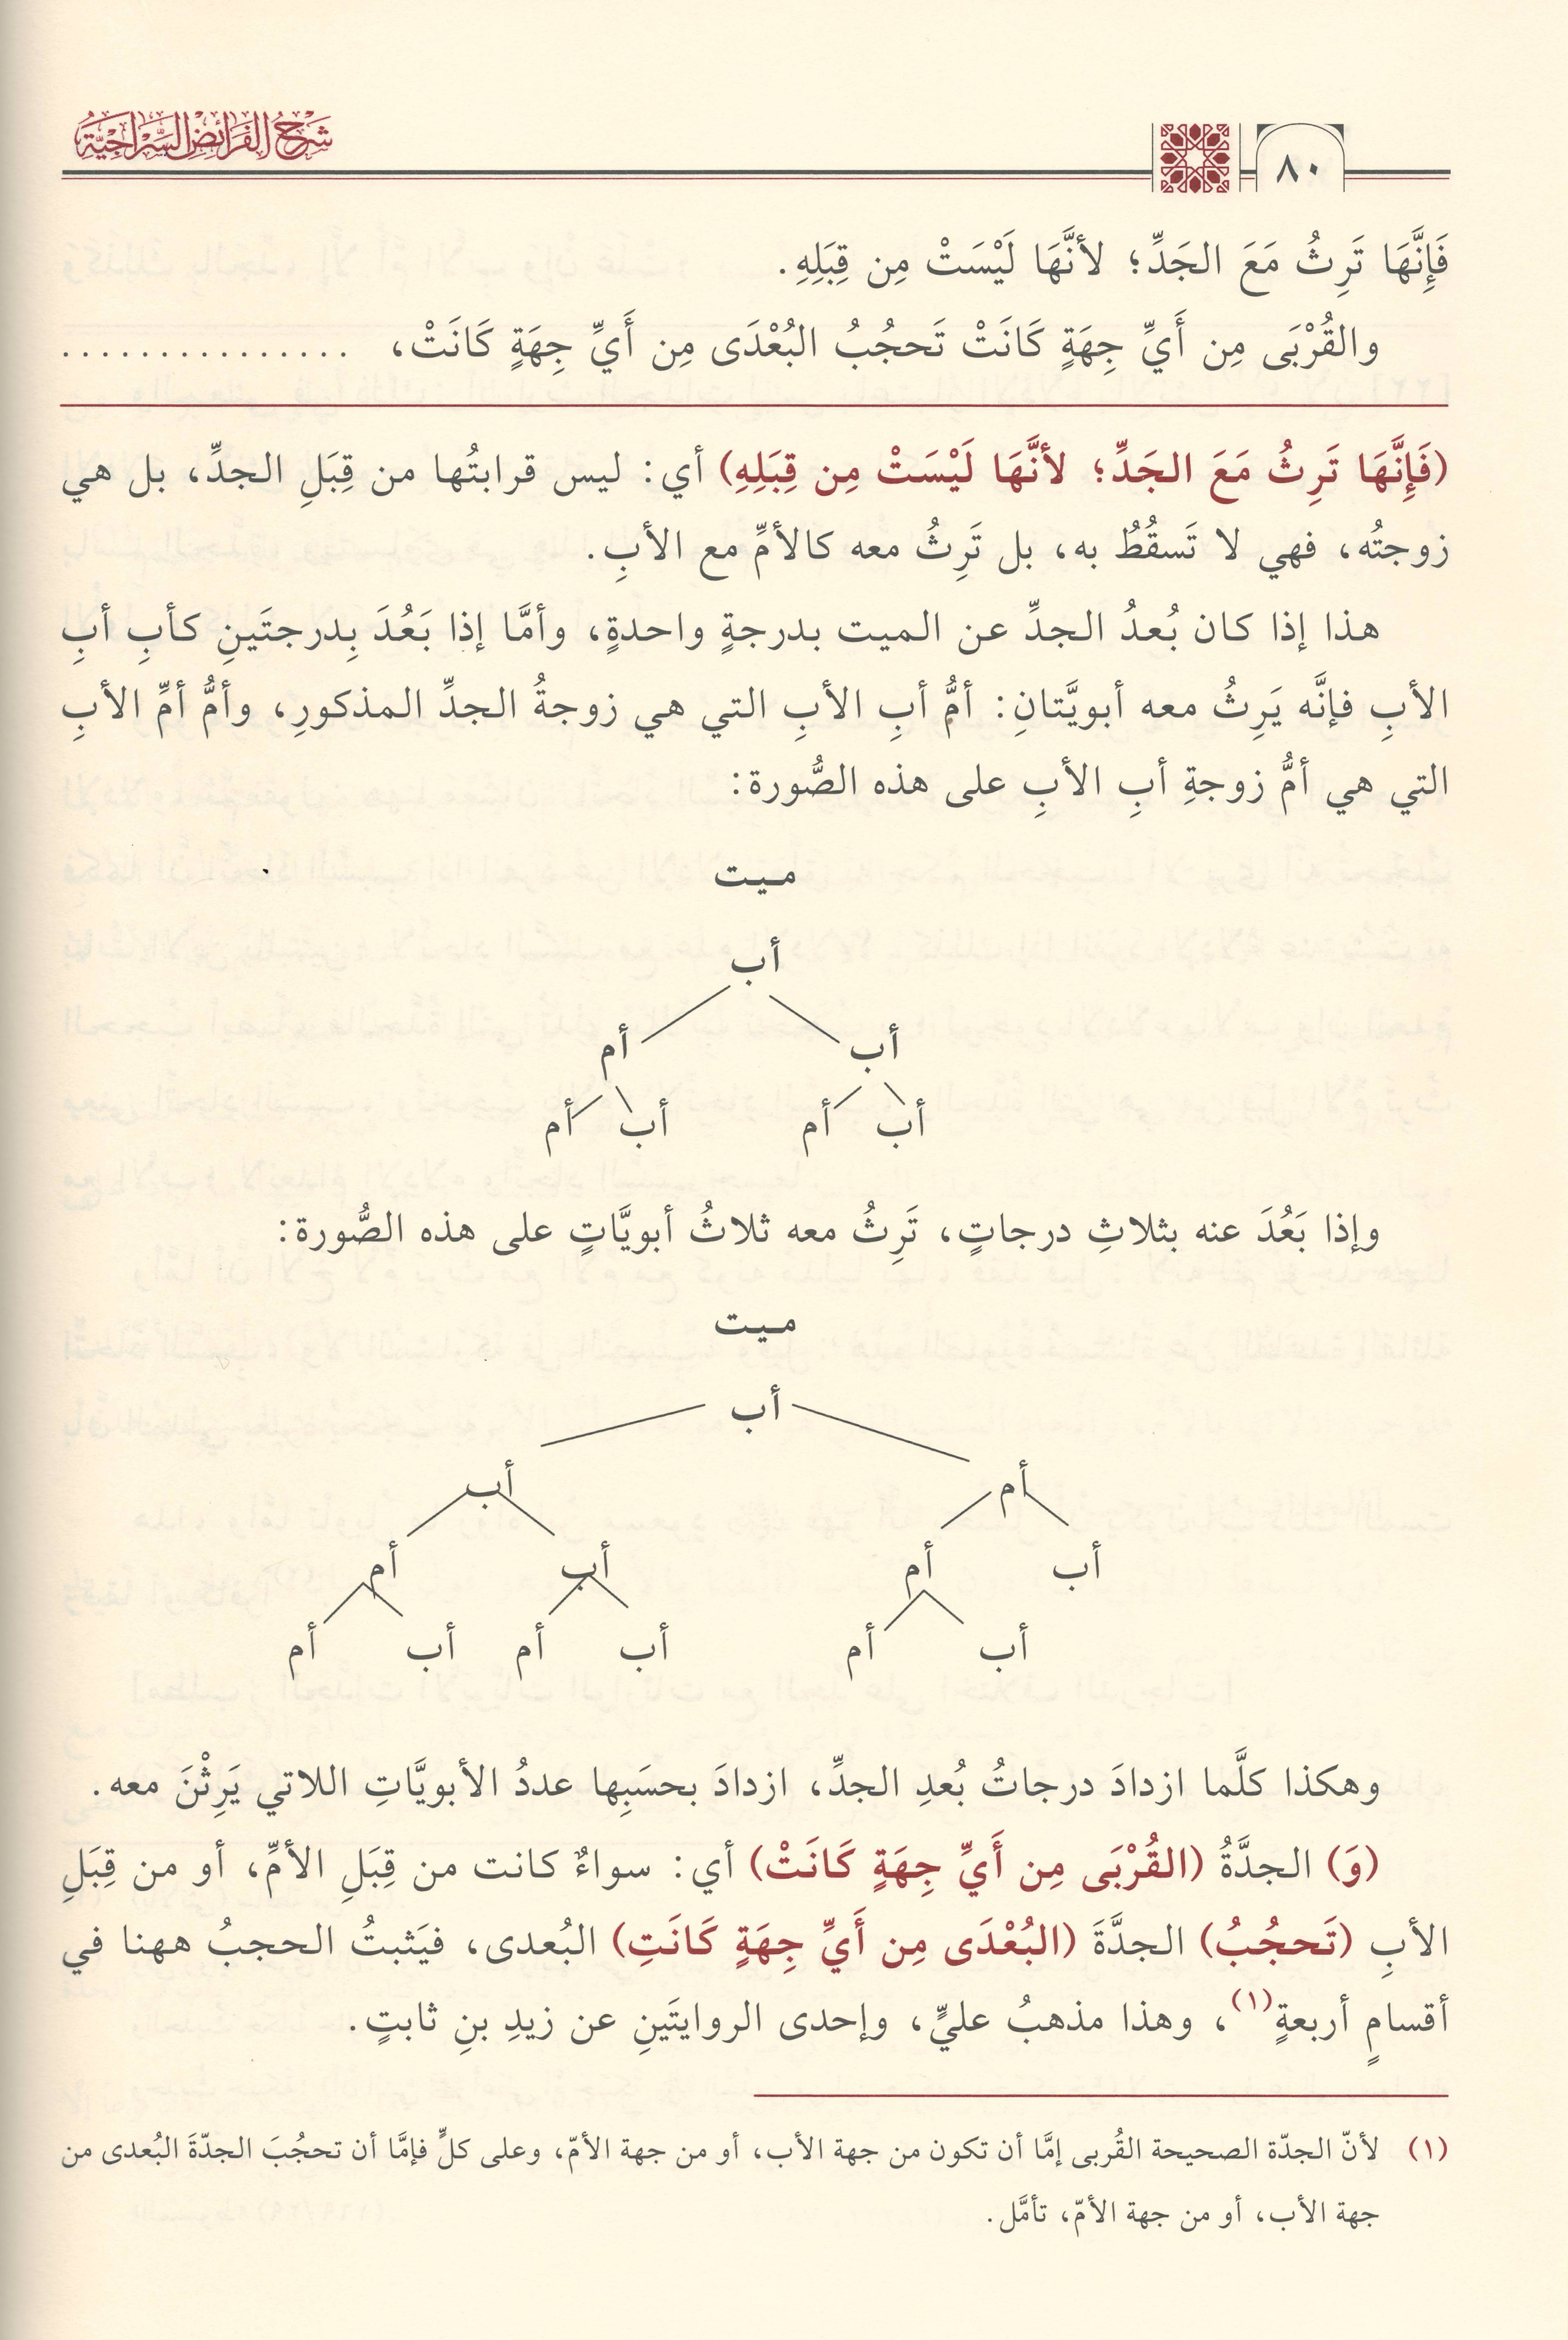 شَرْحُ الفَرَائِضِ السِّرَاجِيَّة
٨٠
فَإِنَّهَا تَرِثُ مَعَ الجَدِّ؛ لأنَّهَا لَيْسَتْ مِن قِبَلِهِ.
والقُرْبَى مِن أَيِّ جِهَةٍ كَانَتْ تَحجُبُ البُعْدَى مِن أَيِّ جِهَةٍ كَانَتْ، ...............
(فَإِنَّهَا تَرِثُ مَعَ الجَدِّ؛ لأنَّهَا لَيْسَتْ مِن قِبَلِهِ) أي: ليس قرابتُها من قِبَلِ الجدِّ، بل هي
زوجتُه، فهي لا تَسقُطُ به، بل تَرِثُ معه كالأمِّ مع الأبِ.
هذا إذا كان بُعدُ الجدِّ عن الميت بدرجةٍ واحدةٍ، وأمَّا إذا بَعُدَ بِدرجتَينِ كأبِ أبِ
الأبِ فإنَّه يَرِثُ معه أبويَّتانِ: أمُّ أبِ الأبِ التي هي زوجةُ الجدِّ المذكورِ، وأمُّ أمِّ الأبِ
التي هي أمُّ زوجةِ أبِ الأبِ على هذه الصُّورة:
ميت
أب
أب أم
أب أم أب أم
وإذا بَعُدَ عنه بثلاثِ درجاتٍ، تَرِثُ معه ثلاثُ أبويَّاتٍ على هذه الصُّورة:
ميت
أب
أم أب
أب أم أب أم
أب أم أب أم أب أم
وهكذا كلَّما ازدادَ درجاتُ بُعدِ الجدِّ، ازدادَ بحسَبِها عددُ الأبويَّاتِ اللاتي يَرِثْنَ معه.
(وَ) الجدَّةُ (القُرْبَى مِن أَيِّ جِهَةٍ كَانَتْ) أي: سواءٌ كانت من قِبَلِ الأمِّ، أو من قِبَلِ
الأبِ (تَحجُبُ) الجدَّةَ (البُعْدَى مِن أَيِّ جِهَةٍ كَانَتِ) البُعدى، فيَثبتُ الحجبُ ههنا في
أقسامٍ أربعةٍ(١)، وهذا مذهبُ عليٍّ، وإحدى الروايتَينِ عن زيدِ بنِ ثابتٍ.
(١) لأنّ الجدّة الصحيحة القُربى إمَّا أن تكون من جهة الأب، أو من جهة الأمّ، وعلى كلٍّ فإمَّا أن تحجُبَ الجدّةَ البُعدى من
جهة الأب، أو من جهة الأمّ، تأمَّل.